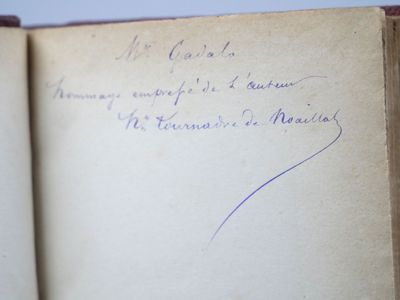 Mr Gadala
hommage empressé de l'auteur
Hte Tournadre de Noaillat